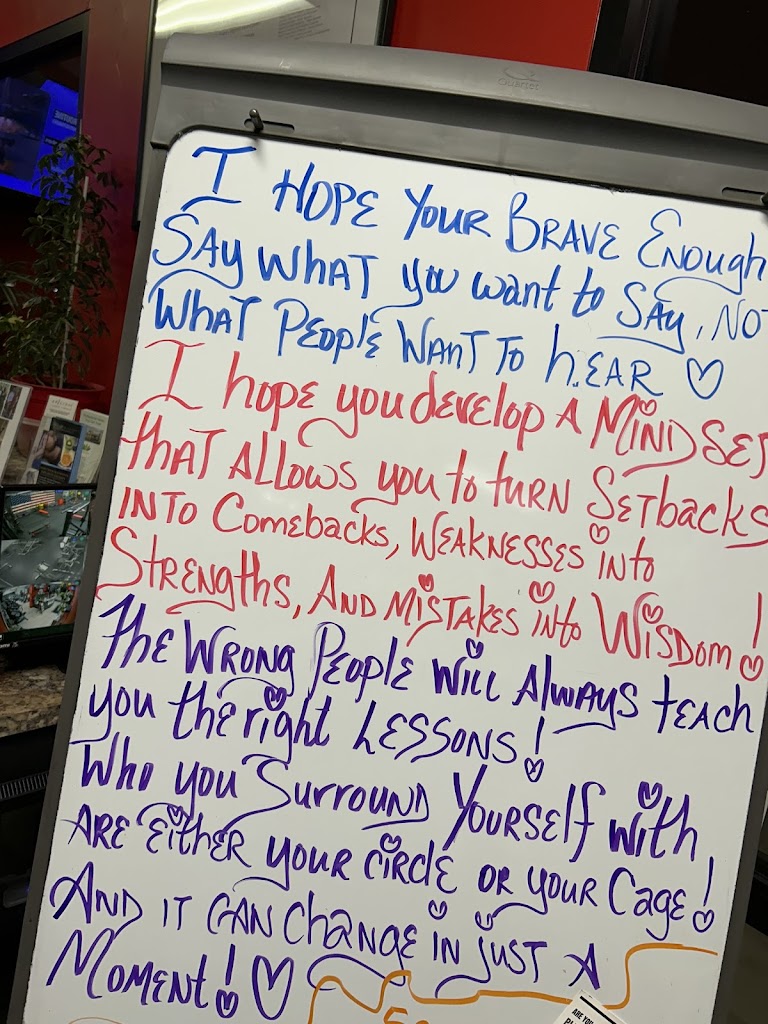 Quartet
I HOPE YOUR BRAVE ENOUGH
SAY WHAT you want to SAY, NOT
WHAT PEOPLE WANT TO hEAR ♡
I hope you develop A MINDSET
that ALLOWS you to tURN SETbacks
INTO Comebacks, WEAKNESSES into
STRENgths, AND MISTAKES into WISDOM!
the WRONG PEOPLE WILL AlwAYS tEACH
you the right LESSONS!
Who you SURROUND YOURSELF with
ARE EithER YOUR circlE OR YOUR CAGE!
AND IT CAN Change in just A
MOMENT! ♡
ARE YOU